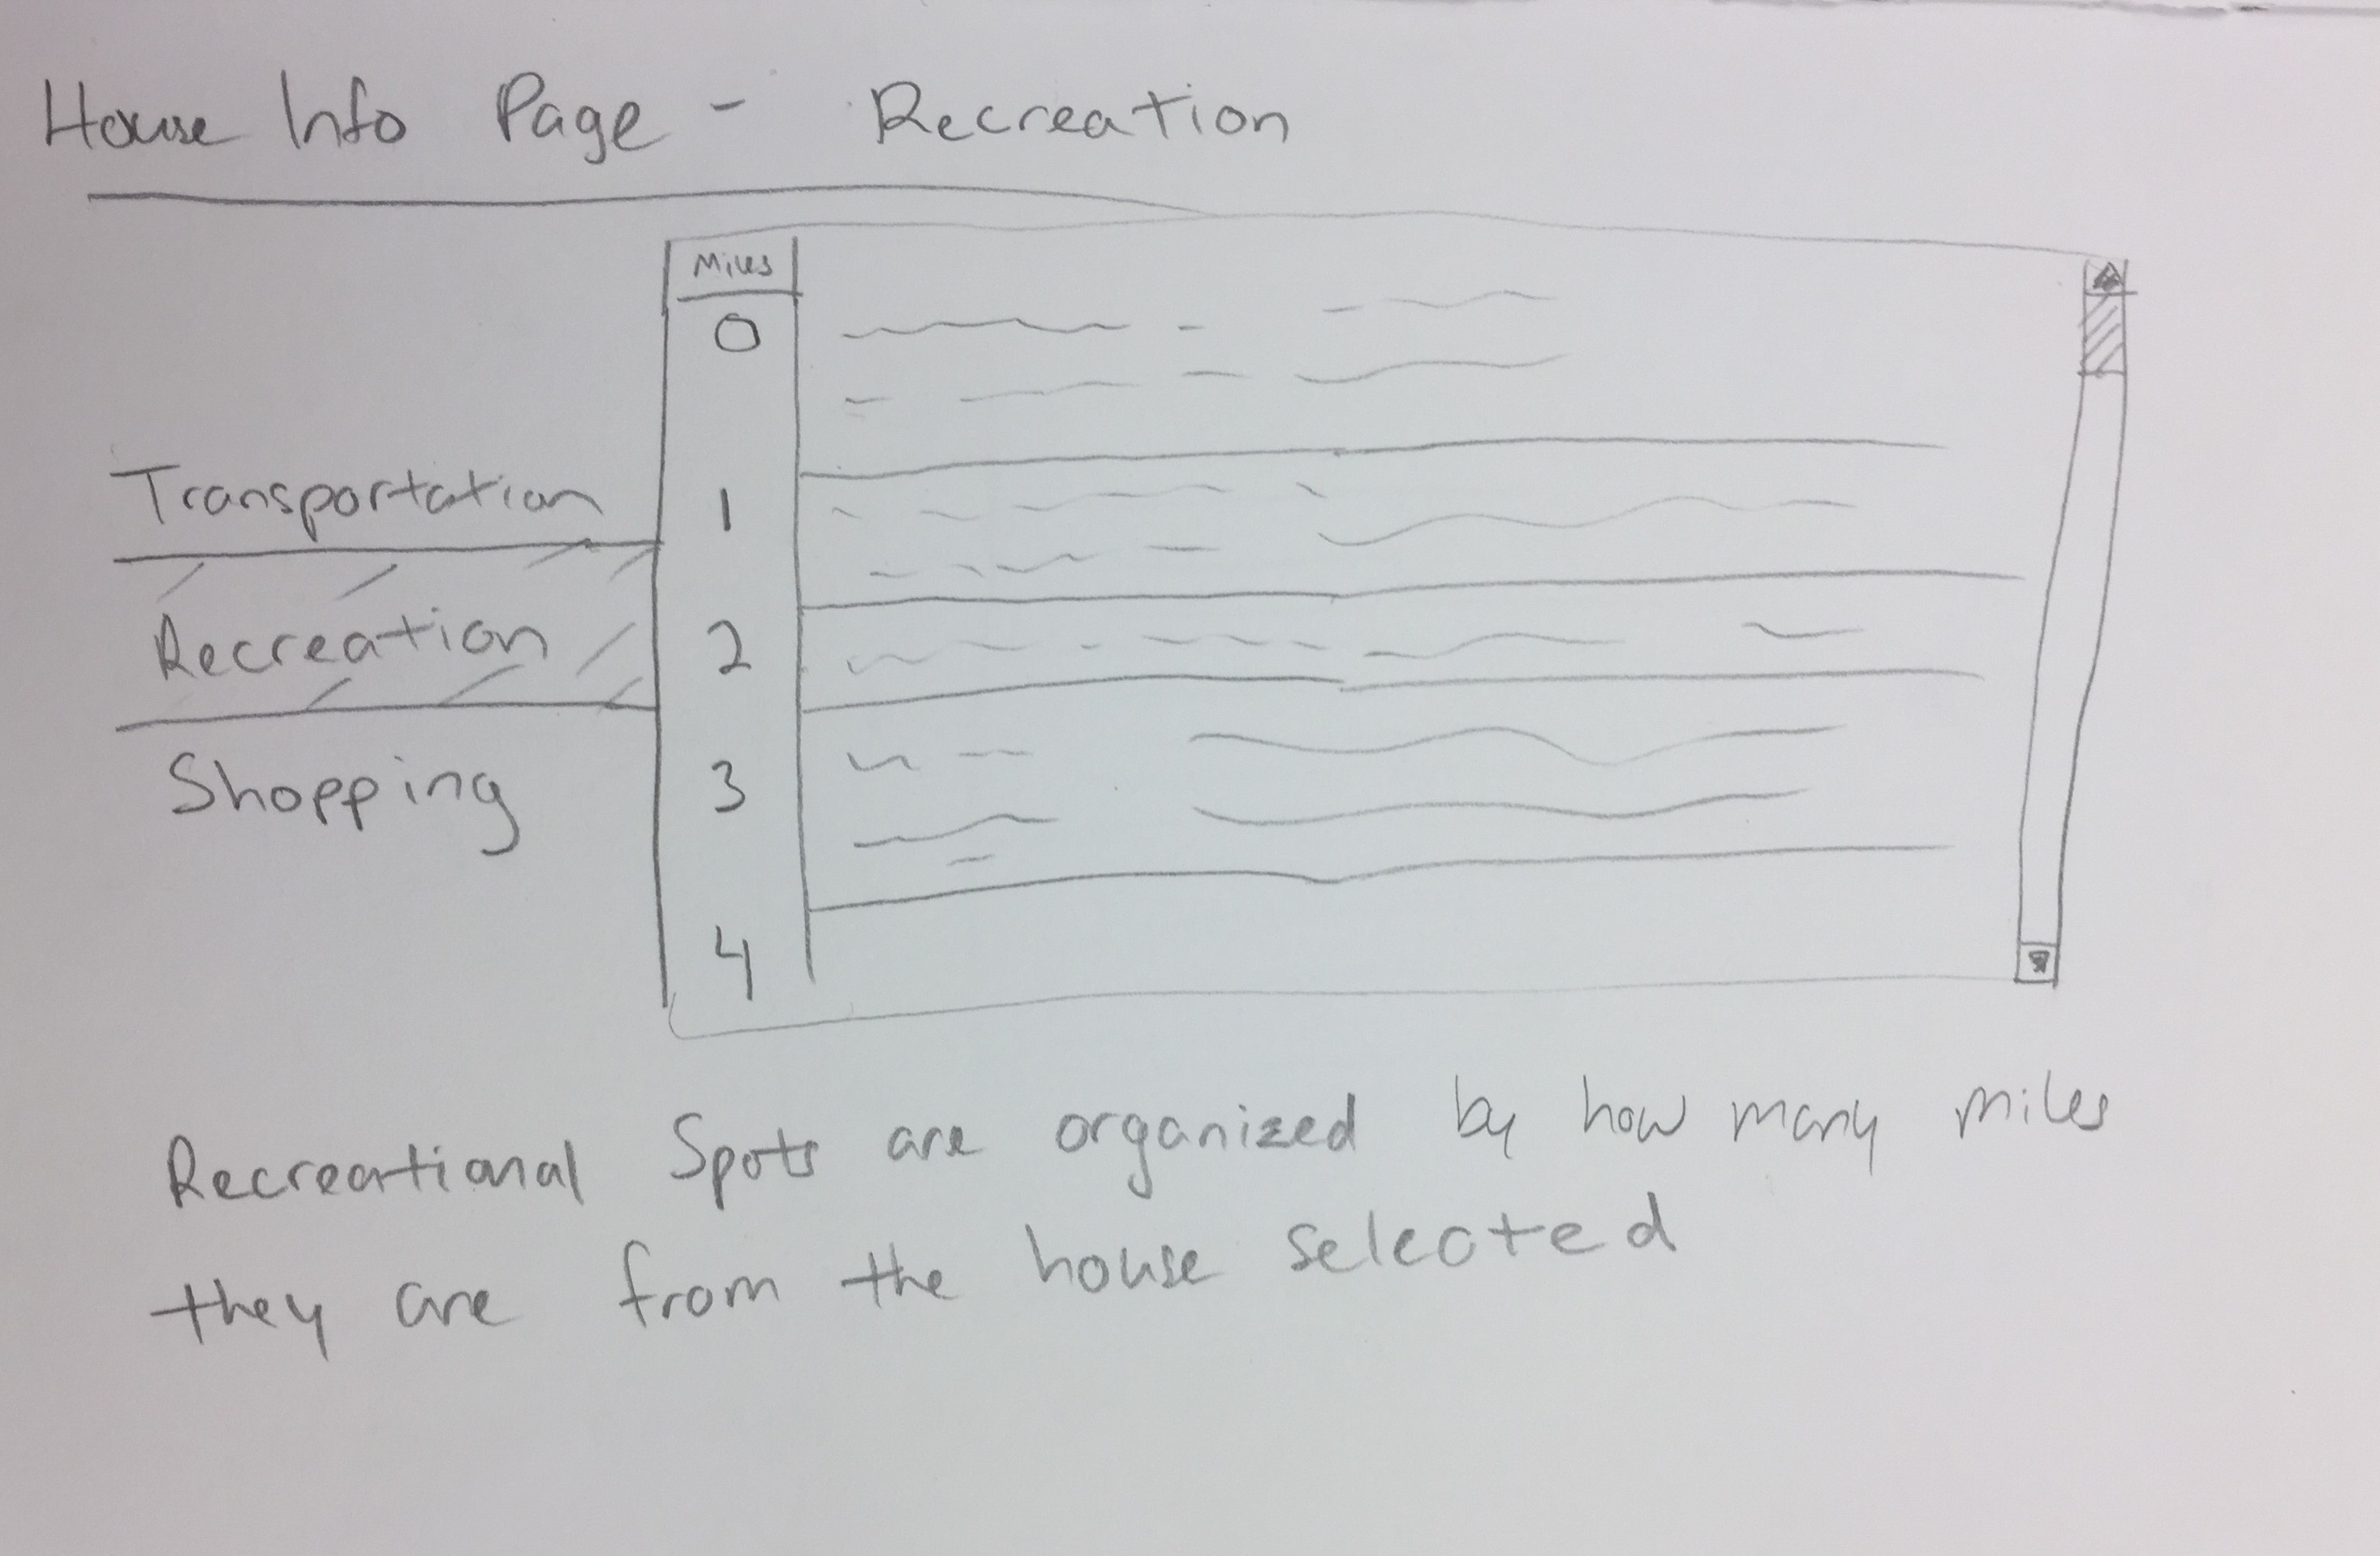 House Info Page - Recreation
Miles
0
1
2
3
4
Transportation
Recreation
Shopping
Recreational Spots are organized by how many miles
they are from the house selected